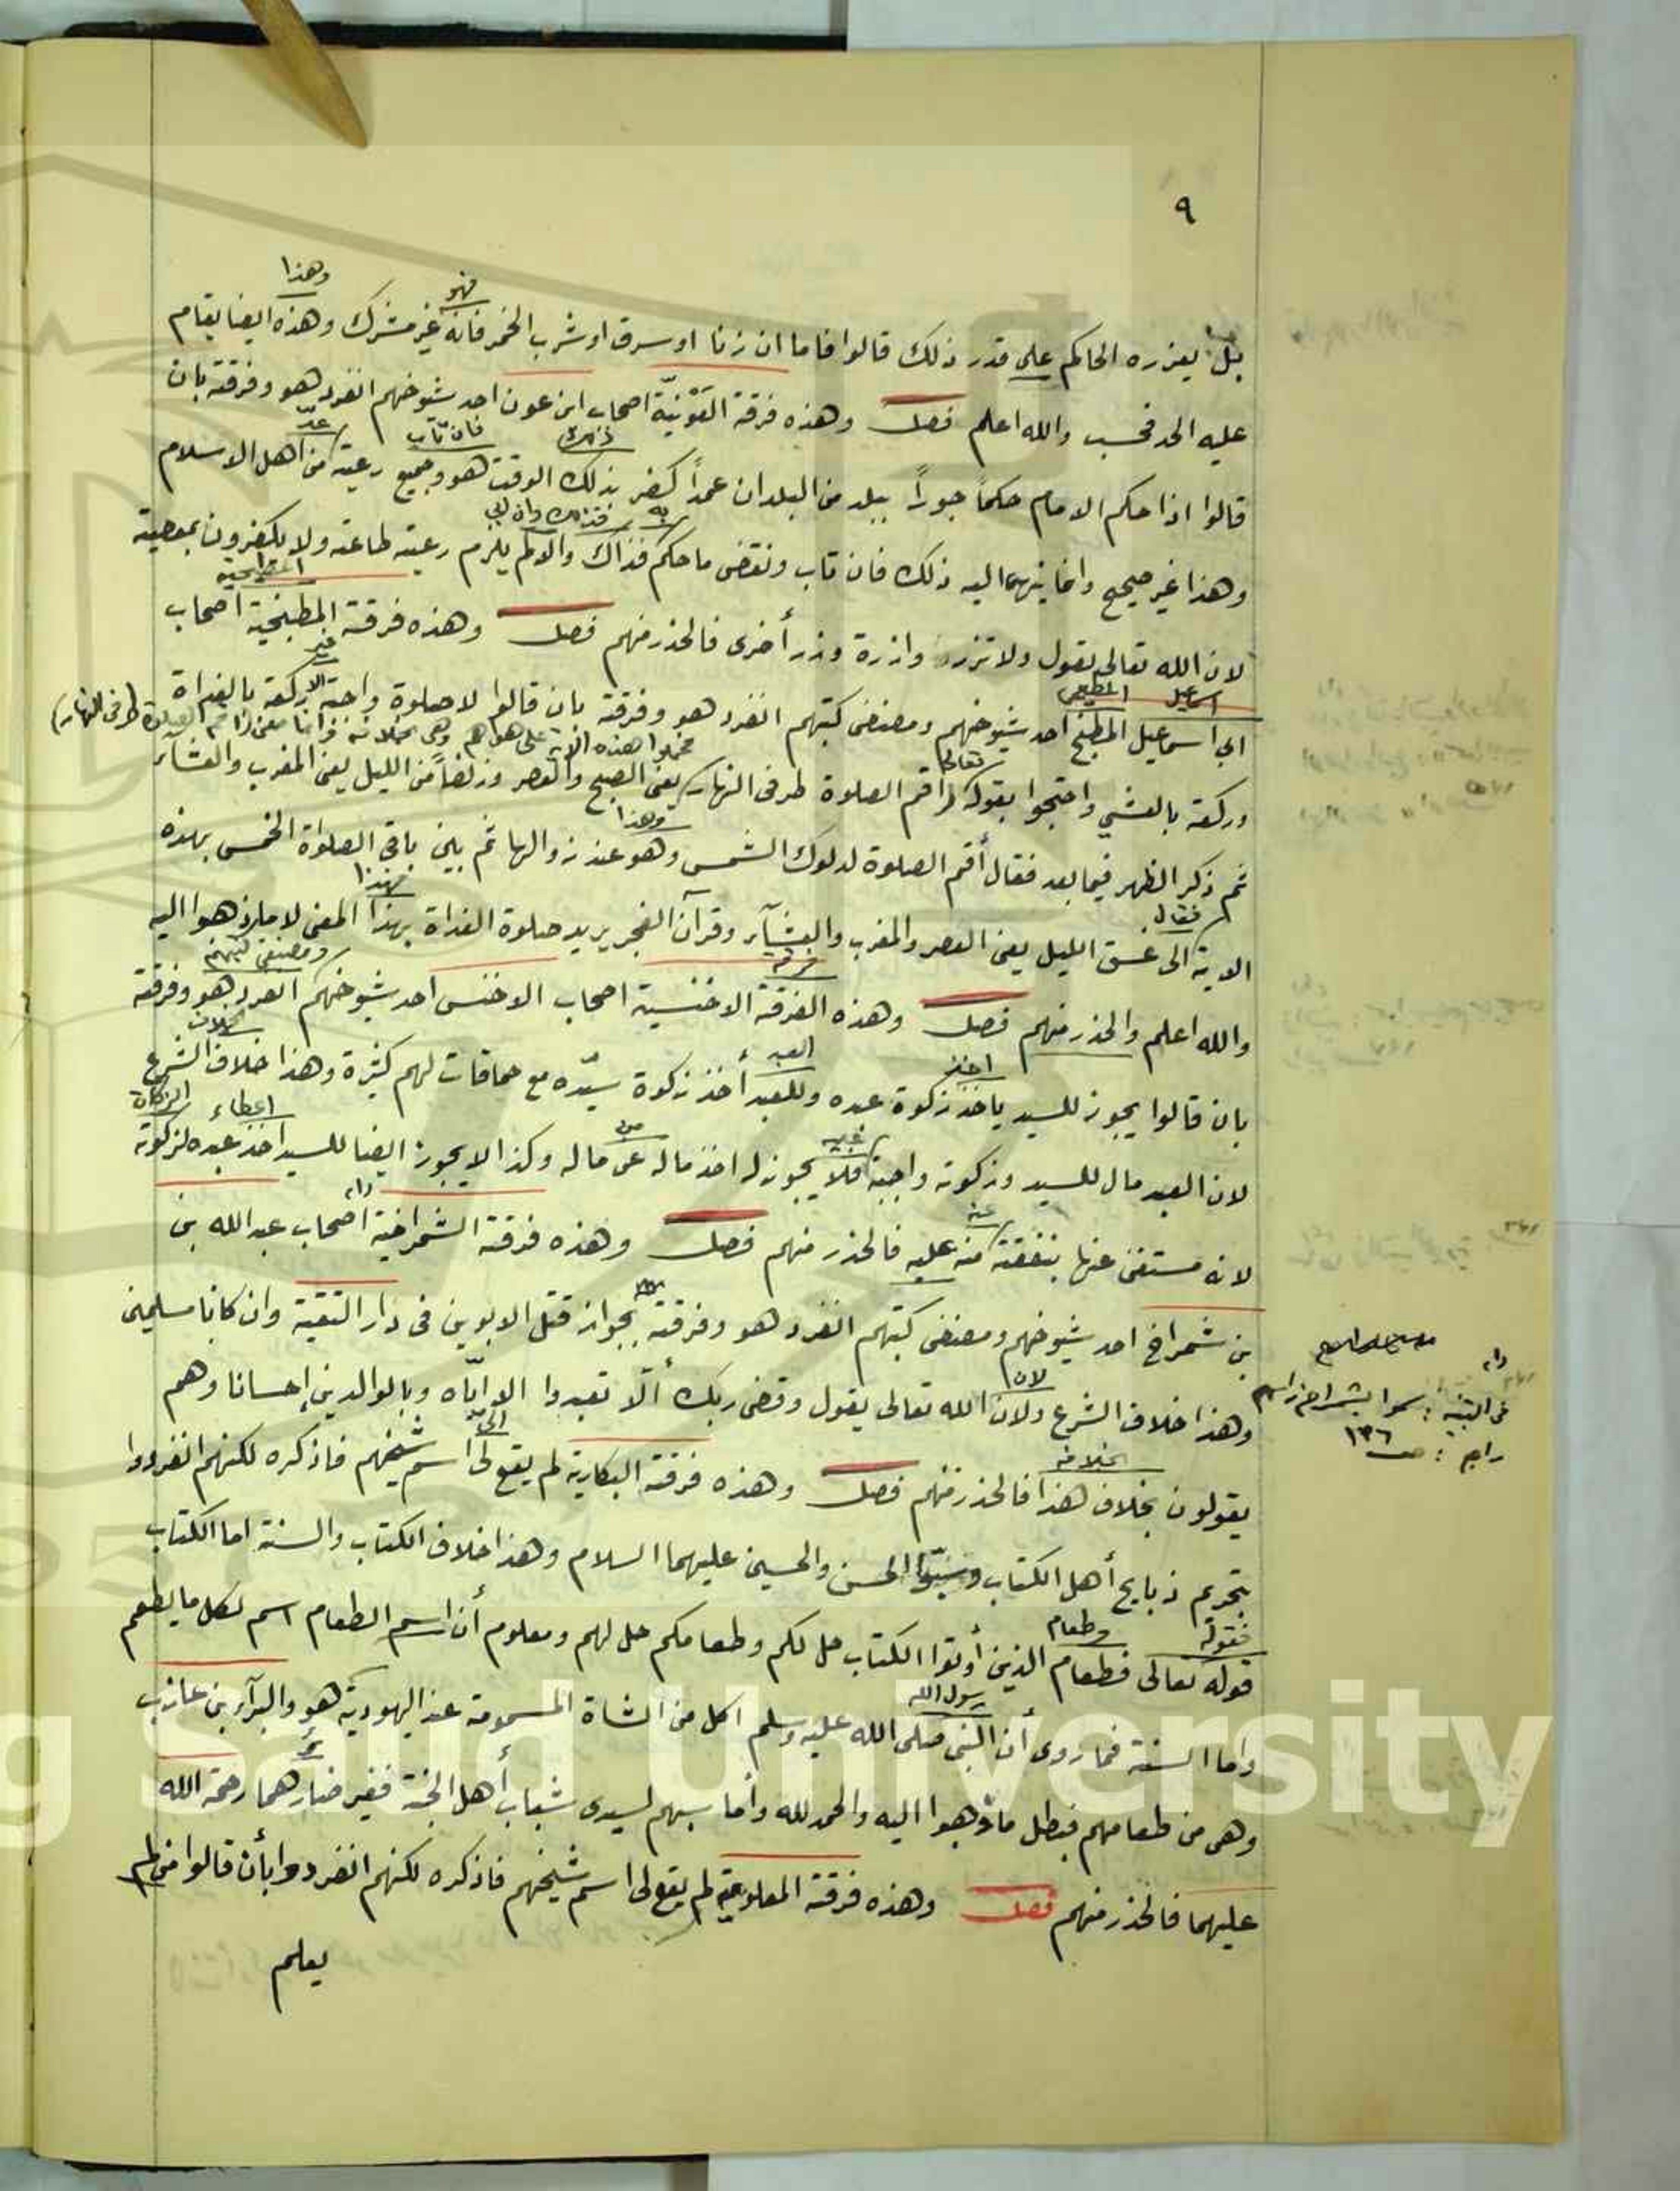 ٩
وهذا
فهو
بل يعزره الحاكم على قدر ذلك قالوا فاما ان زنا او سرق او شرب الخمر فانه غير مشرك وهذه ايضا يقام
عليه الحد فحسب والله اعلم فصل وهذه فرقة العَوْنيّة اصحاب ابن عون احد شيوخهم انفرد هو وفرقته بان
فان تاب
قالوا اذا حكم الامام حكماً جوراً ببلد من البلدان عمداً كفر بذلك الوقت هو وجميع رعيته من اهل الاسلام
به
وهذا غير صحيح وانما ينهما اليه ذلك فان تاب ونقض ما حكم فذاك والا لم يلزم رعيته طاعته ولا يكفرون بمعصيته
لان الله تعالى يقول ولا تزر وازرة وزر أخرى فالحذر منهم فصل وهذه فرقة المطبخية اصحاب
اسماعيل
ابي اسماعيل المطبخ احد شيوخهم ومصنفي كتبهم انفرد هو وفرقته بان قالوا لا صلوة واجبة الا ركعة بالغداة
تعالى
فحملوا هذه الآية على هواهم وهي بخلافه
(طرفي النهار)
وركعة بالعشي واحتجوا بقوله اقم الصلوة طرفي النهار يعني الصبح والعصر وزلفاً من الليل يعني المغرب والعشاء
وهذا
ثم ذكر الظهر فيما بعد فقال أقم الصلوة لدلوك الشمس وهو عند زوالها ثم بين باقي الصلواة الخمس بهذه
فقال
فهذا
الاية الى غسق الليل يعني العصر والمغرب والعشاء وقرآن الفجر يريد صلوة الغداة بهذا المعنى لا ما ذهبوا اليه
فرقة
ومصنفي كتبهم
والله اعلم والحذر منهم فصل وهذه الفرقة الاخنسية اصحاب الاخنس احد شيوخهم انفرد هو وفرقته
اخذ
العبد
بخلاف
بان قالوا يجوز للسيد ياخذ زكوة عبده وللعبد أخذ زكوة سيّده مع حماقات لهم كثيرة وهذا خلاف الشرع
من
اعطاء
الزكاة
لان العبد مال للسيد وزكوته واجبة فلا يجوز له اخذ ماله عن ماله وكذا لا يجوز ايضا للسيد اخذ عبده لزكوته
عنه
لانه مستغن عنها بنفقته منه عليه فالحذر منهم فصل وهذه فرقة الشمراخية اصحاب عبد الله بن
بن شمراخ احد شيوخهم ومصنفي كتبهم انفرد هو وفرقته بجواز قتل الابوين في دار التقية وان كانا مسلمين
لان
وهذا خلاف الشرع ولان الله تعالى يقول وقضى ربك ألّا تعبدوا الا ايّاه وبالوالدين إحسانا وهم
في التنبيه:
راجع: ص ١٣٦
بخلافه
الي
يقولون بخلاف هذا فالحذر منهم فصل وهذه فرقة البكارية لم يقع لى اسم شيخهم فاذكره لكنهم انفردوا
بتحريم ذبايح أهل الكتاب وسبّوا الحسن والحسين عليهما السلام وهذا خلاف الكتاب والسنة اما الكتاب
فقوله
وطعام
قوله تعالى فطعام الذين أوتوا الكتاب حل لكم وطعامكم حل لهم ومعلوم أن اسم الطعام اسم لكل ما يطعم
رسول الله
واما السنة فما روى أن النبي صلى الله عليه وسلم اكل من الشاة المسمومة عند اليهودية هو والبرآء بن عازب
وهي من طعامهم فبطل ما ذهبوا اليه والحمد لله وأما سبهم لسيدى شباب أهل الجنة فغير ضارهما رحمة الله
عليهما فالحذر منهم فصل وهذه فرقة المعلومية لم يقع لى اسم شيخهم فاذكره لكنهم انفردوا بأن قالوا من لم
يعلم
g Saud University